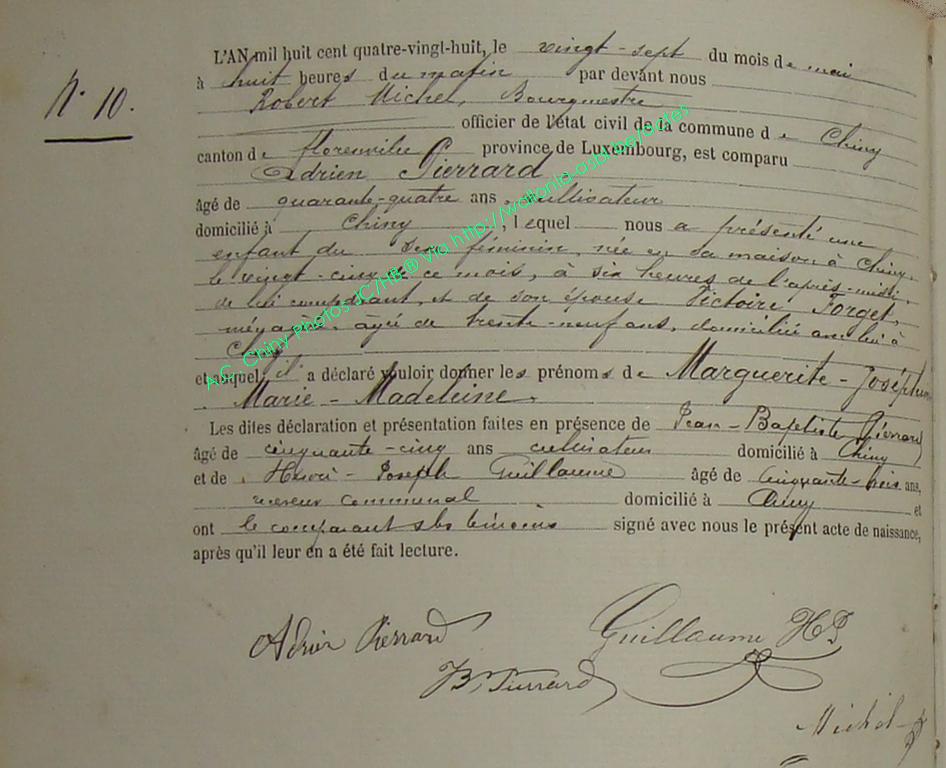 N° 10.
L'AN mil huit cent quatre-vingt-huit, le vingt-sept du mois de mai
à huit heures du matin par devant nous
Robert Michel, Bourgmestre
officier de l'état civil de la commune de Chiny
canton de florenville province de Luxembourg, est comparu
Adrien Pierrard
âgé de quarante-quatre ans, cultivateur
domicilié à Chiny, lequel nous a présenté une
enfant du sexe féminin, née en sa maison à Chiny,
le vingt-cinq de ce mois, à six heures de l'après-midi,
de lui comparant, et de son épouse Victoire Forget,
ménagère, âgée de trente-neuf ans, domiciliée avec lui à
Chiny
et auquel il a déclaré vouloir donner les prénoms de Marguerite-Joséphine
Marie-Madeleine.
Les dites déclaration et présentation faites en présence de Jean-Baptiste Pierrard
âgé de cinquante-cinq ans cultivateur domicilié à Chiny
et de Henri-Joseph Guillaume âgé de cinquante-trois ans,
receveur communal domicilié à Chiny et
ont le comparant et les témoins signé avec nous le présent acte de naissance,
après qu'il leur en a été fait lecture.
Adrien Pierrard
Guillaume HJ
JB. Pierrard
Michel
A.C. Chiny Photos JC/HB ® Via http://wallonia-asbl.be/bases